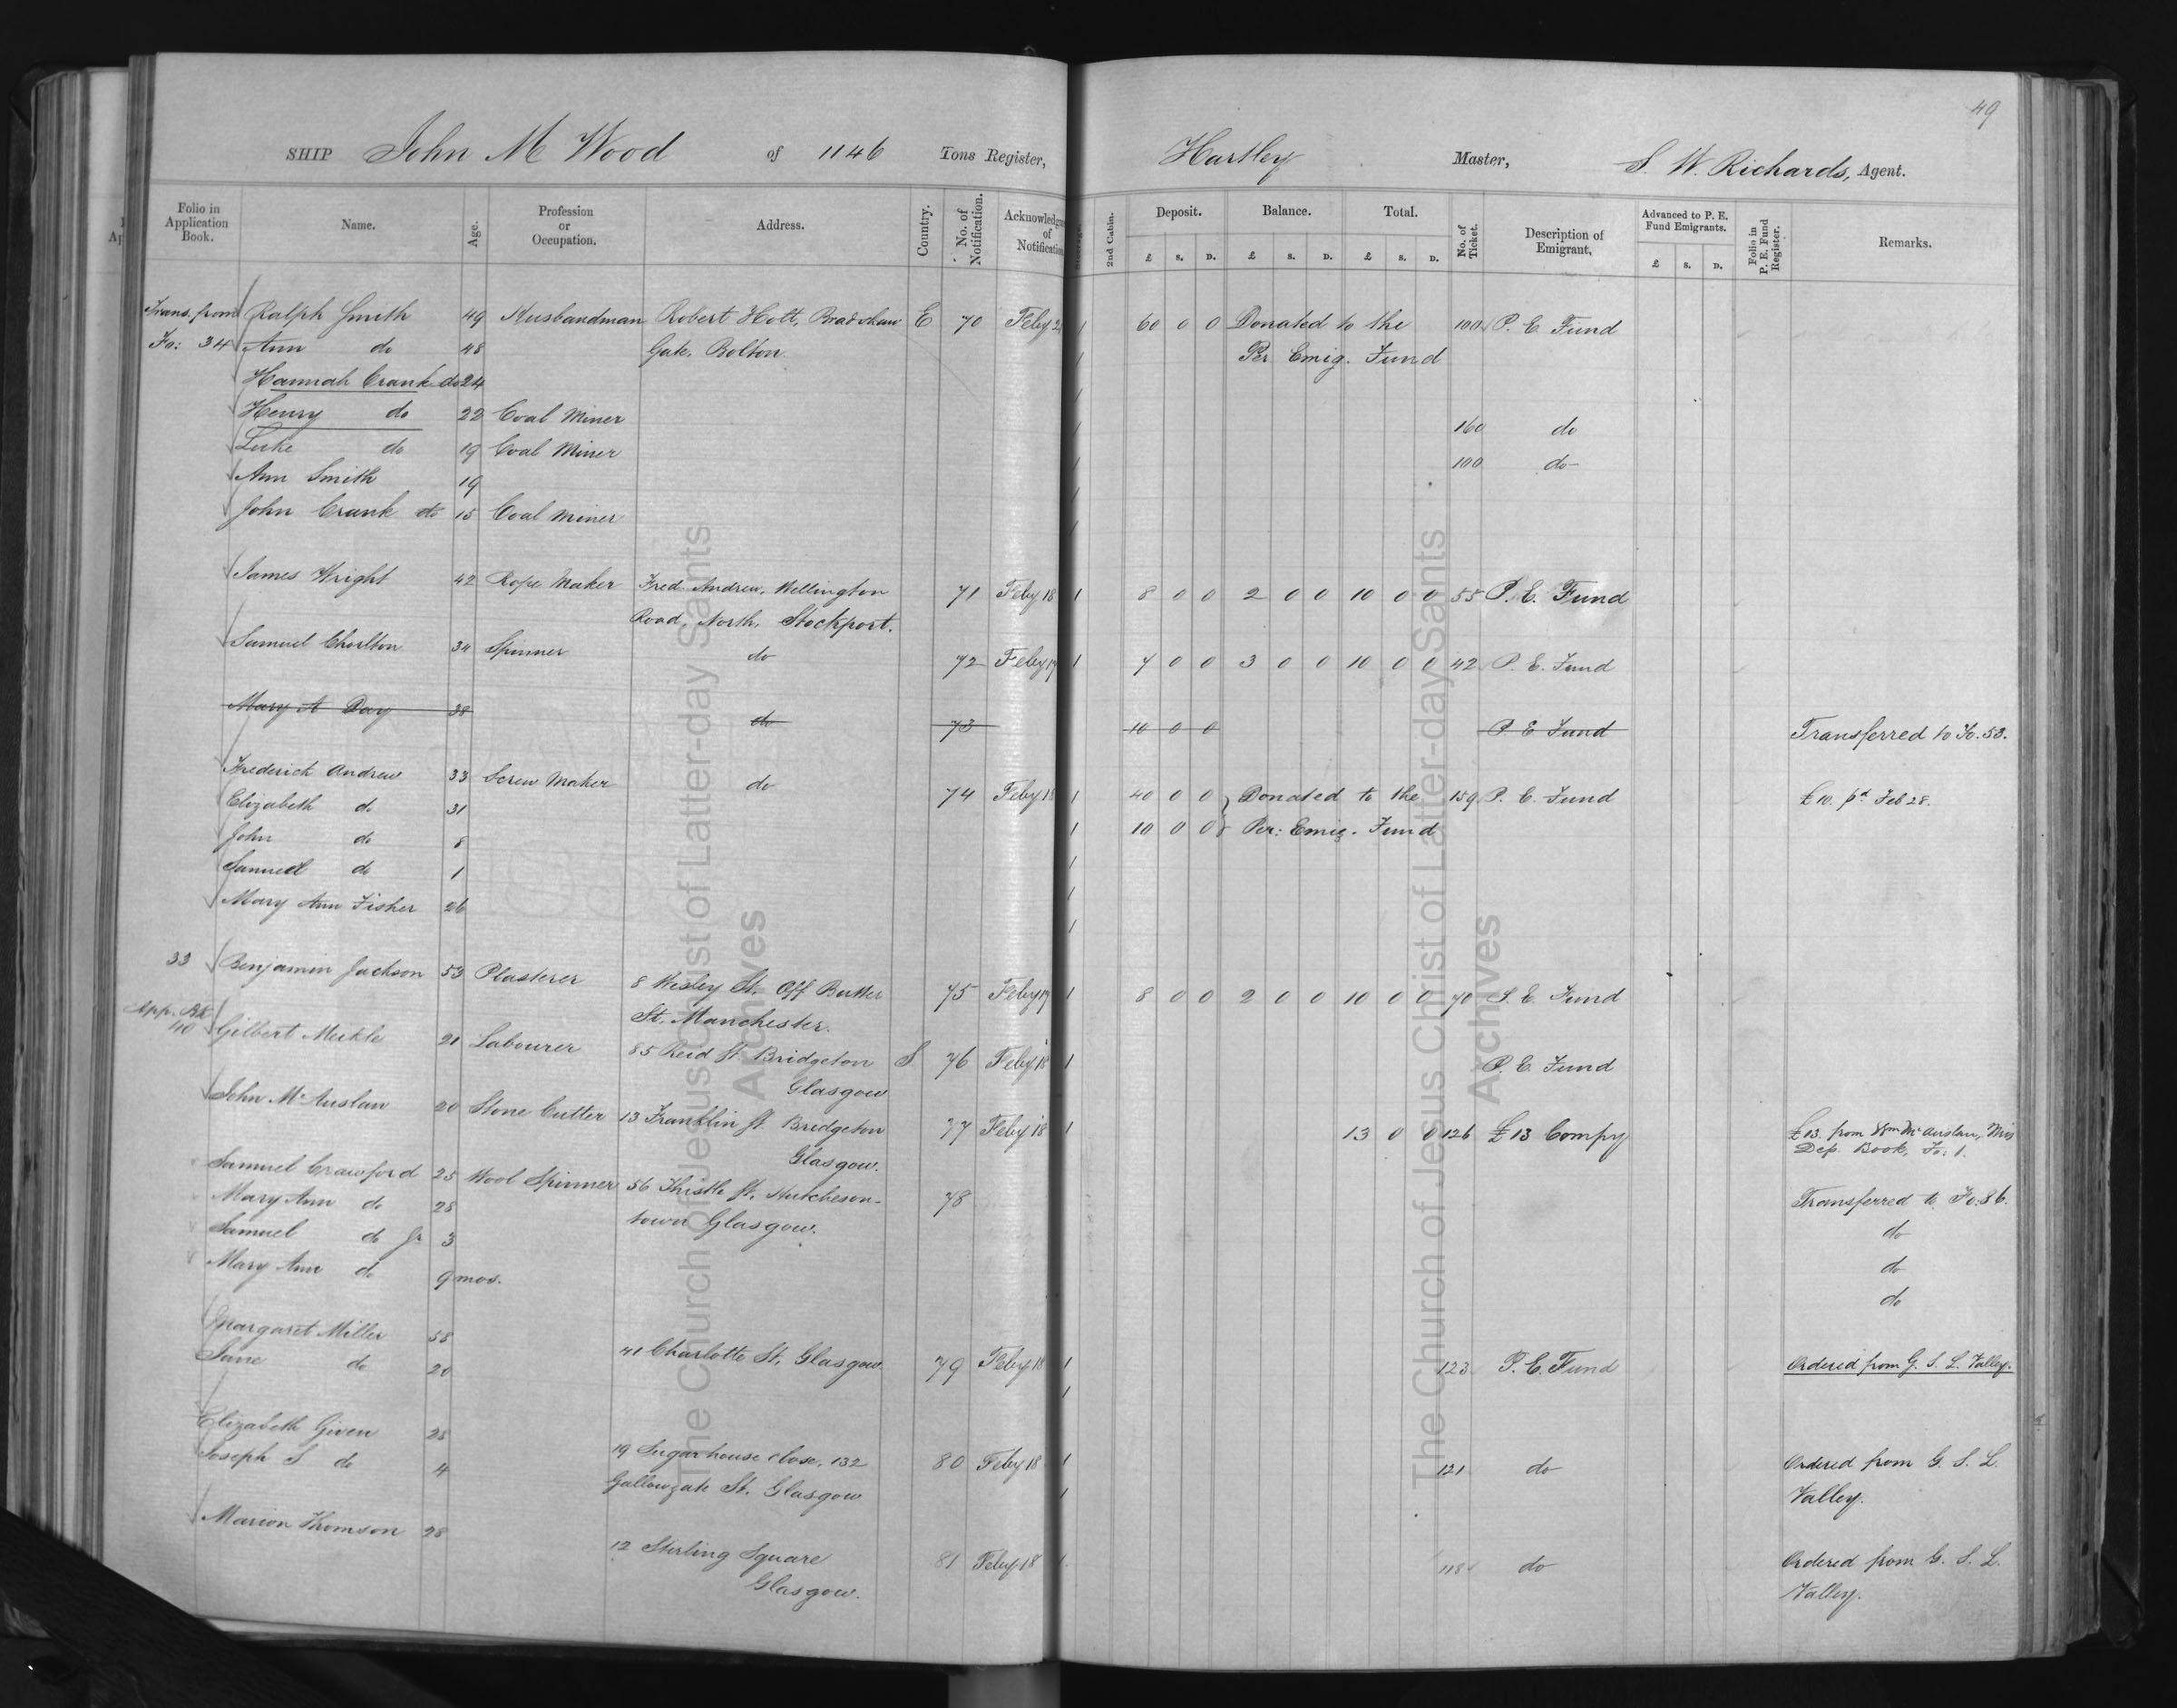 49
SHIP John M Wood of 1146 Tons Register, Hartley Master, S. W. Richards, Agent.
Folio in Application Book. Name. Age. Profession or Occupation. Address. Country. No. of Notification. Acknowledgm of Notification 2nd Cabin. Deposit. Balance. Total. No. of Ticket. Description of Emigrant. Advanced to P. E. Fund Emigrants. Folio in P. E. Fund Register. Remarks.
£ S. D. £ S. D. £ S. D. £ S. D.
Trans. from Ralph Smith 49 Husbandman Robert Holt, Bradshaw E 70 Feby 2 1 60 0 0 Donated to the 100 P. E. Fund
Fo: 34 Ann do 48 Gate, Bolton 1 Per Emig. Fund
Hannah Crank do 24 1
Henry do 22 Coal Miner 1 160 do
Luke do 19 Coal Miner 1 100 do
Ann Smith 19 1
John Crank do 15 Coal Miner 1
James Wright 42 Rope Maker Fred Andrew, Wellington 71 Feby 18 1 8 0 0 2 0 0 10 0 0 55 P. E. Fund
Road, North, Stockport.
Samuel Chorlton 34 Spinner do 72 Feby 19 1 7 0 0 3 0 0 10 0 0 42 P. E. Fund
Mary A Day 38 do 73 10 0 0 P E Fund Transferred to Fo. 53.
Frederick Andrew 33 Screw Maker do 74 Feby 18 1 40 0 0 Donated to the 159 P. E. Fund £10. pd Feb 28.
Elizabeth do 31 1 10 0 0 Per: Emig. Fund
John do 8 1
Samuel do 1 1
Mary Ann Fisher 26 1
33 Benjamin Jackson 53 Plasterer 8 Wesley St. Off Butler 75 Feby 19 1 8 0 0 2 0 0 10 0 0 70 P. E. Fund
St. Manchester.
App. Bk 40 Gilbert Meikle 21 Labourer 85 Reid St. Bridgeton S 76 Feby 18 1 P. E. Fund
Glasgow
John McAuslan 20 Stone Cutter 13 Franklin St. Bridgeton 77 Feby 18 1 13 0 0 126 £13 Compy £13. from Wm McAuslan, Mis
Glasgow. Dep Book, Fo: 1.
Samuel Crawford 25 Wool Spinner 56 Thistle St. Hutcheson- 78 Transferred to Fo: 86.
Mary Ann do 28 town Glasgow. do
Samuel do Jr 3 do
Mary Ann do 9 mos. do
Margaret Miller 58 41 Charlotte St. Glasgow 79 Feby 18 1 123 P. E. Fund Ordered from G. S. L. Valley.
Jane do 20 1
Elizabeth Given 28 19 Sugarhouse Close, 132 80 Feby 18 1 121 do Ordered from G. S. L.
Joseph S do 4 Gallowgate St. Glasgow 1 Valley.
Marion Thomson 28 12 Sterling Square 81 Feby 18 1 118 do Ordered from G. S. L.
Glasgow. Valley.
The Church of Jesus Christ of Latter-day Saints
Archives
The Church of Jesus Christ of Latter-day Saints
Archives